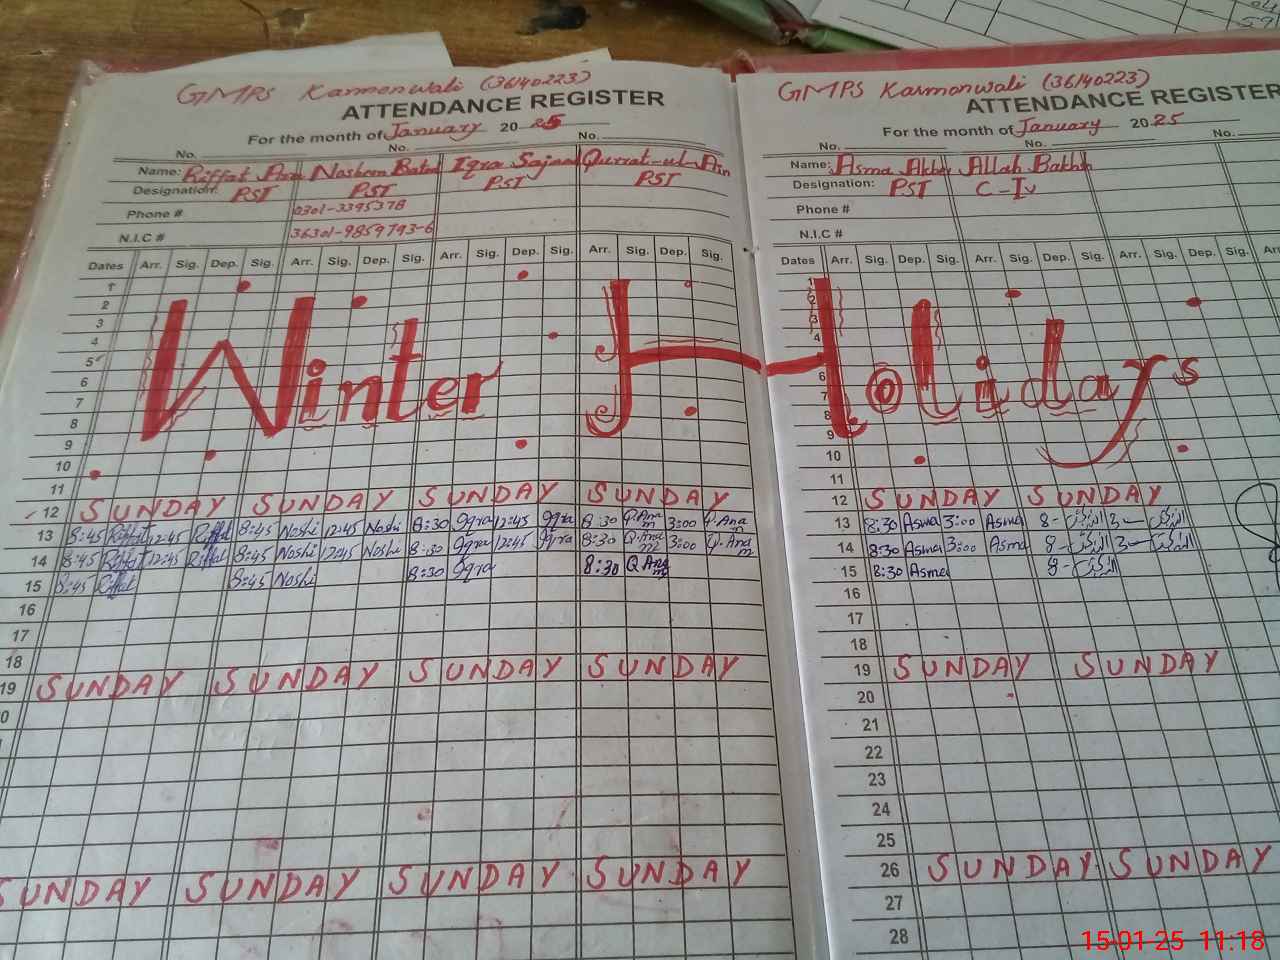 GMPS Karmonwali (36140223)
ATTENDANCE REGISTER
For the month of January 2025
No. No. No.
Name: Riffat Ara Nosheen Batool Iqra Sajjad Qurrat-ul-Ain
Designation: PST PST PST PST
Phone # 0301-3395378
N.I.C # 36301-9859793-6
Dates Arr. Sig. Dep. Sig. Arr. Sig. Dep. Sig. Arr. Sig. Dep. Sig. Arr. Sig. Dep. Sig.
1
2
3
4
5
6
7
8
9
10
11
Winter Holidays
12 SUNDAY SUNDAY SUNDAY SUNDAY
13 8:45 Riffat 12:45 Riffat 8:45 Noshi 12:45 Noshi 8:30 Iqra 12:45 Iqra 8:30 Q.Ann 3:00 Q.Ann
14 8:45 Riffat 12:45 Riffat 8:45 Noshi 12:45 Noshi 8:30 Iqra 12:45 Iqra 8:30 Q.Ann 3:00 Q.Ann
15 8:45 Riffat 8:45 Noshi 8:30 Iqra 8:30 Q Ann
16
17
18
19 SUNDAY SUNDAY SUNDAY SUNDAY
SUNDAY SUNDAY SUNDAY SUNDAY
GMPS Karmonwali (36140223)
ATTENDANCE REGISTER
For the month of January 2025
No. No. No.
Name: Asma Akbar Allah Bakhsh
Designation: PST C-IV
Phone #
N.I.C #
Dates Arr. Sig. Dep. Sig. Arr. Sig. Dep. Sig. Arr. Sig. Dep. Sig.
1
2
3
4
6
7
8
9
10
11
12 SUNDAY SUNDAY
13 8:30 Asma 3:00 Asma 8- 3-
14 8:30 Asma 3:00 Asma 8- 3-
15 8:30 Asma 8-
16
17
18
19 SUNDAY SUNDAY
20
21
22
23
24
25
26 SUNDAY SUNDAY
27
28
15-01-25 11:18